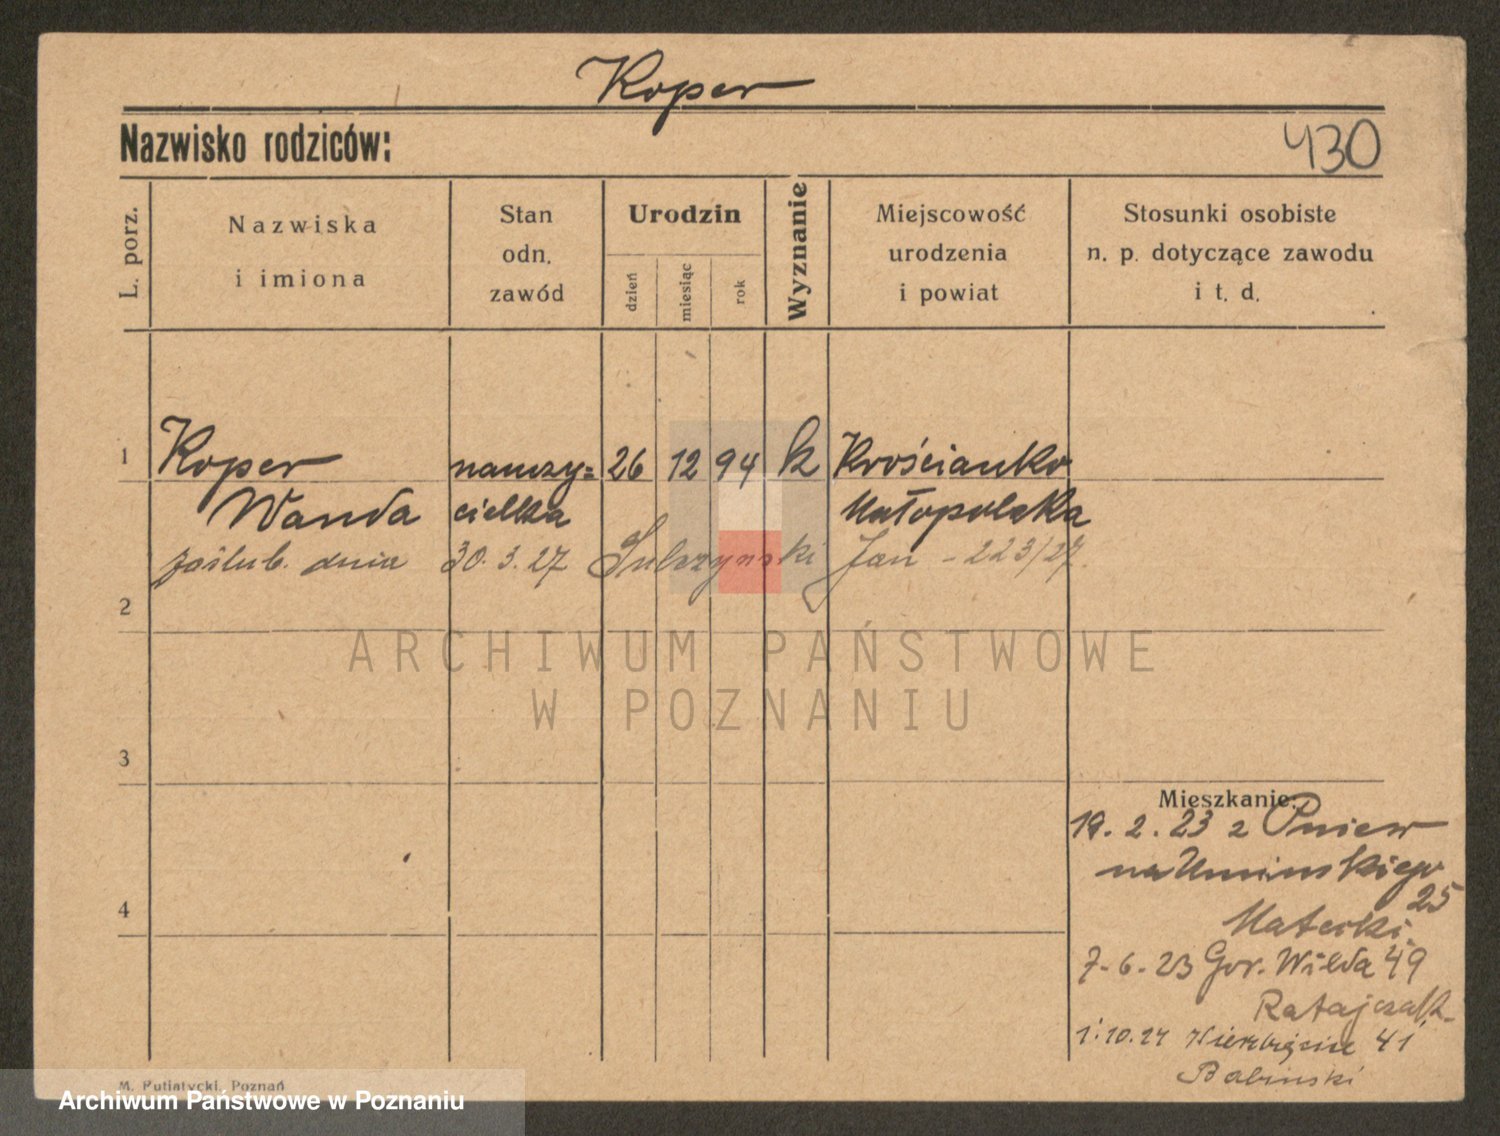 Koper
Nazwisko rodziców:
430
L. porz.
Nazwiska
i imiona
Stan
odn.
zawód
Urodzin
dzień
miesiąc
rok
Wyznanie
Miejscowość
urodzenia
i powiat
Stosunki osobiste
n. p. dotyczące zawodu
i t. d.
1 Koper nauczy= 26 12 94 k Krościanko
Wanda cielka Małopolska
zaślub. dnia 30.3.27 Sulczyński Jan - 223/27.
2
ARCHIWUM PAŃSTWOWE
W POZNANIU
3
Mieszkanie:
19.2.23 z Pniew
na Umińskiego
25
4
Matecki
7-6-23 Gór. Wilda 49
Ratajczak
1.10.24 Wierzbięcice 41
Babinski
M. Putiatycki, Poznań
Archiwum Państwowe w Poznaniu